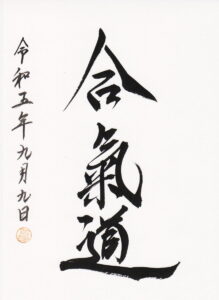 合氣道
令和五年九月九日